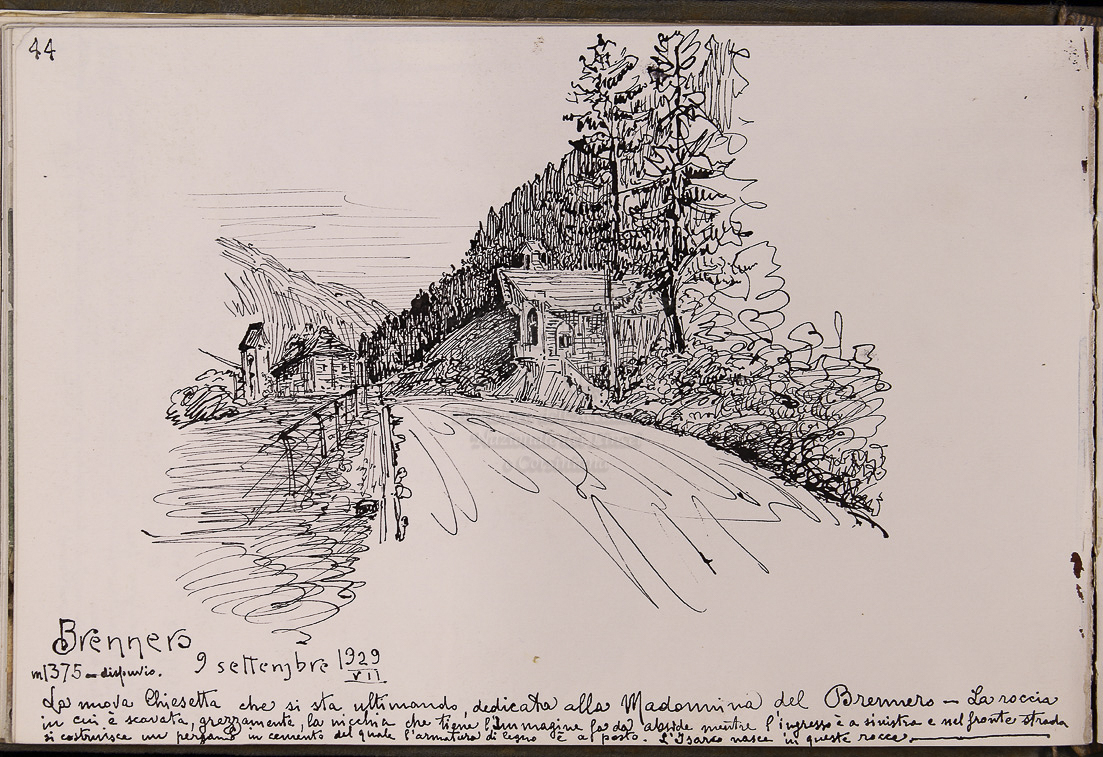 44
Brennero
m 1375 - dispuvio.
9 settembre 1929
VII
La nuova Chiesetta che si sta ultimando, dedicata alla Madonnina del Brennero - La roccia
in cui è scavata, grezzamente, la nicchia che tiene l'Immagine fa da abside mentre l'ingresso è a sinistra e nel fronte strada
si costruisce un pergamo in cemento del quale l'armatura di legno è a posto. L'Isarco nasce in queste rocce.